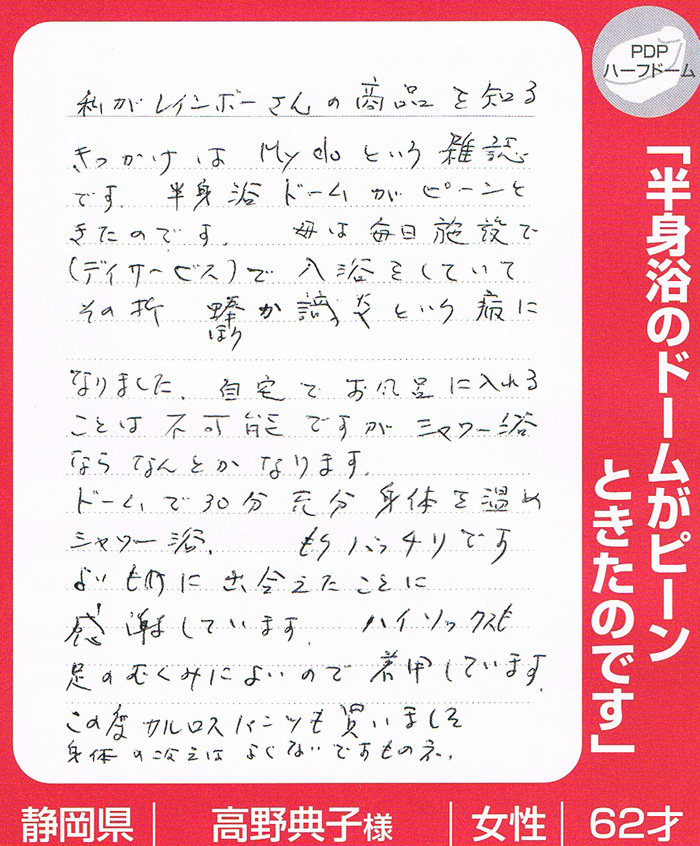 PDP
ハーフドーム
「半身浴のドームがピーン
ときたのです」
私がレインボーさんの商品を知る
きっかけは My doという雑誌
です。半身浴ドームがピーンと
きたのです。 母は毎日施設で
(デイサービス)で入浴をしていて
その折 という病に
ほう
なりました。自宅でお風呂に入れる
ことは不可能ですがシャワー浴
ならなんとかなります。
ドームで30分充分身体を温め
シャワー浴。 もうバッチリです
よいものに出会えたことに
感謝しています。 ハイソックスも
足のむくみによいので着用しています。
この度カルロスパンツも買いまし
身体の冷えはよくないですものネ。
静岡県
高野典子様
女性
62才